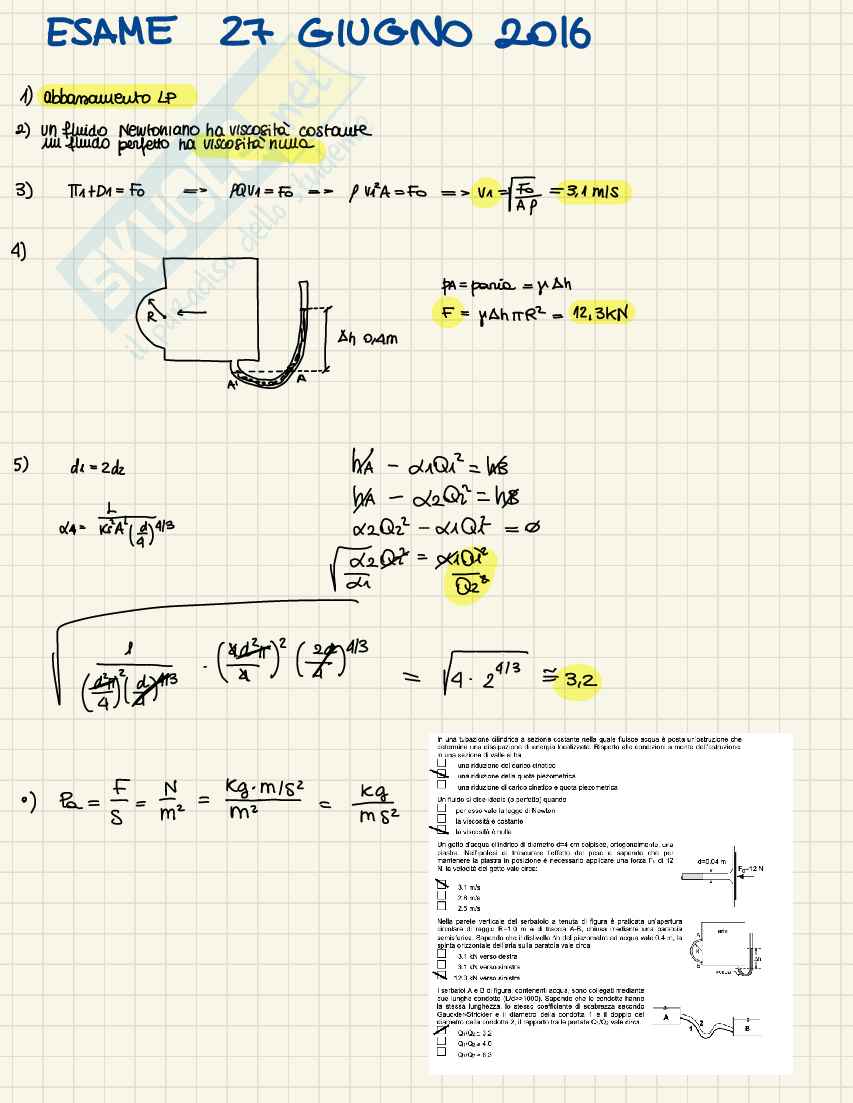 ESAME 27 GIUGNO 2016
1) abbassamento LP
2) un fluido Newtoniano ha viscosità costante
un fluido perfetto ha viscosità nulla
3) Π1+D1 = F0 => ρQV1 = F0 => ρ V1²A = F0 => V1 = √(F0/Aρ) = 3,1 m/s
4)
pA = paria = γ Δh
F = γ Δh π R² = 12,3 kN
R
Δh 0,4m
A' A
5) d1 = 2d2
hA - α1Q1² = hB
hA - α2Q2² = hB
α2Q2² - α1Q1² = ø
L
Ks²A²(d/4)^4/3
√ α2/α1 Q2² = α1Q1²/Q2²
1/((d²π/4)²(d/4)^4/3) · (4d²π/4)² (2d/4)^4/3 = √(4 · 2^4/3) ≅ 3,2
•) Pa = F/S = N/m² = kg·m/s²/m² = kg/m s²
In una tubazione cilindrica a sezione costante nella quale fluisce acqua è posta un'ostruzione che
determina una dissipazione di energia localizzata. Rispetto alle condizioni a monte dell'ostruzione
in una sezione di valle si ha
una riduzione del carico cinetico
una riduzione della quota piezometrica
una riduzione di carico cinetico e quota piezometrica
Un fluido si dice ideale (o perfetto) quando
per esso vale la legge di Newton
la viscosità è costante
la viscosità è nulla
Un getto d'acqua cilindrico di diametro d=4 cm colpisce, ortogonalmente, una
piastra. Nell'ipotesi di trascurare l'effetto del peso e sapendo che per
mantenere la piastra in posizione è necessario applicare una forza F0 di 12
N, la velocità del getto vale circa:
d=0.04 m
F0=12 N
3.1 m/s
2.8 m/s
2.5 m/s
Nella parete verticale del serbatoio a tenuta di figura è praticata un'apertura
circolare di raggio R=1.0 m e di traccia A-B, chiusa mediante una paratoia
semisferica. Sapendo che il dislivello Δh del piezometro ad acqua vale 0.4 m, la
spinta orizzontale dell'aria sulla paratoia vale circa
aria
3.1 kN verso destra
3.1 kN verso sinistra
12.3 kN verso sinistra
I serbatoi A e B di figura, contenenti acqua, sono collegati mediante
due lunghe condotte (L/d>>1000). Sapendo che le condotte hanno
la stessa lunghezza, lo stesso coefficiente di scabrezza secondo
Gauckler-Strickler e il diametro della condotta 1 è il doppio del
diametro della condotta 2, il rapporto tra le portate Q1/Q2 vale circa:
A 1 2 B
Q1/Q2 = 3.2
Q1/Q2 = 4.0
Q1/Q2 = 6.3
SKUOLA.net
il paradiso dello studente